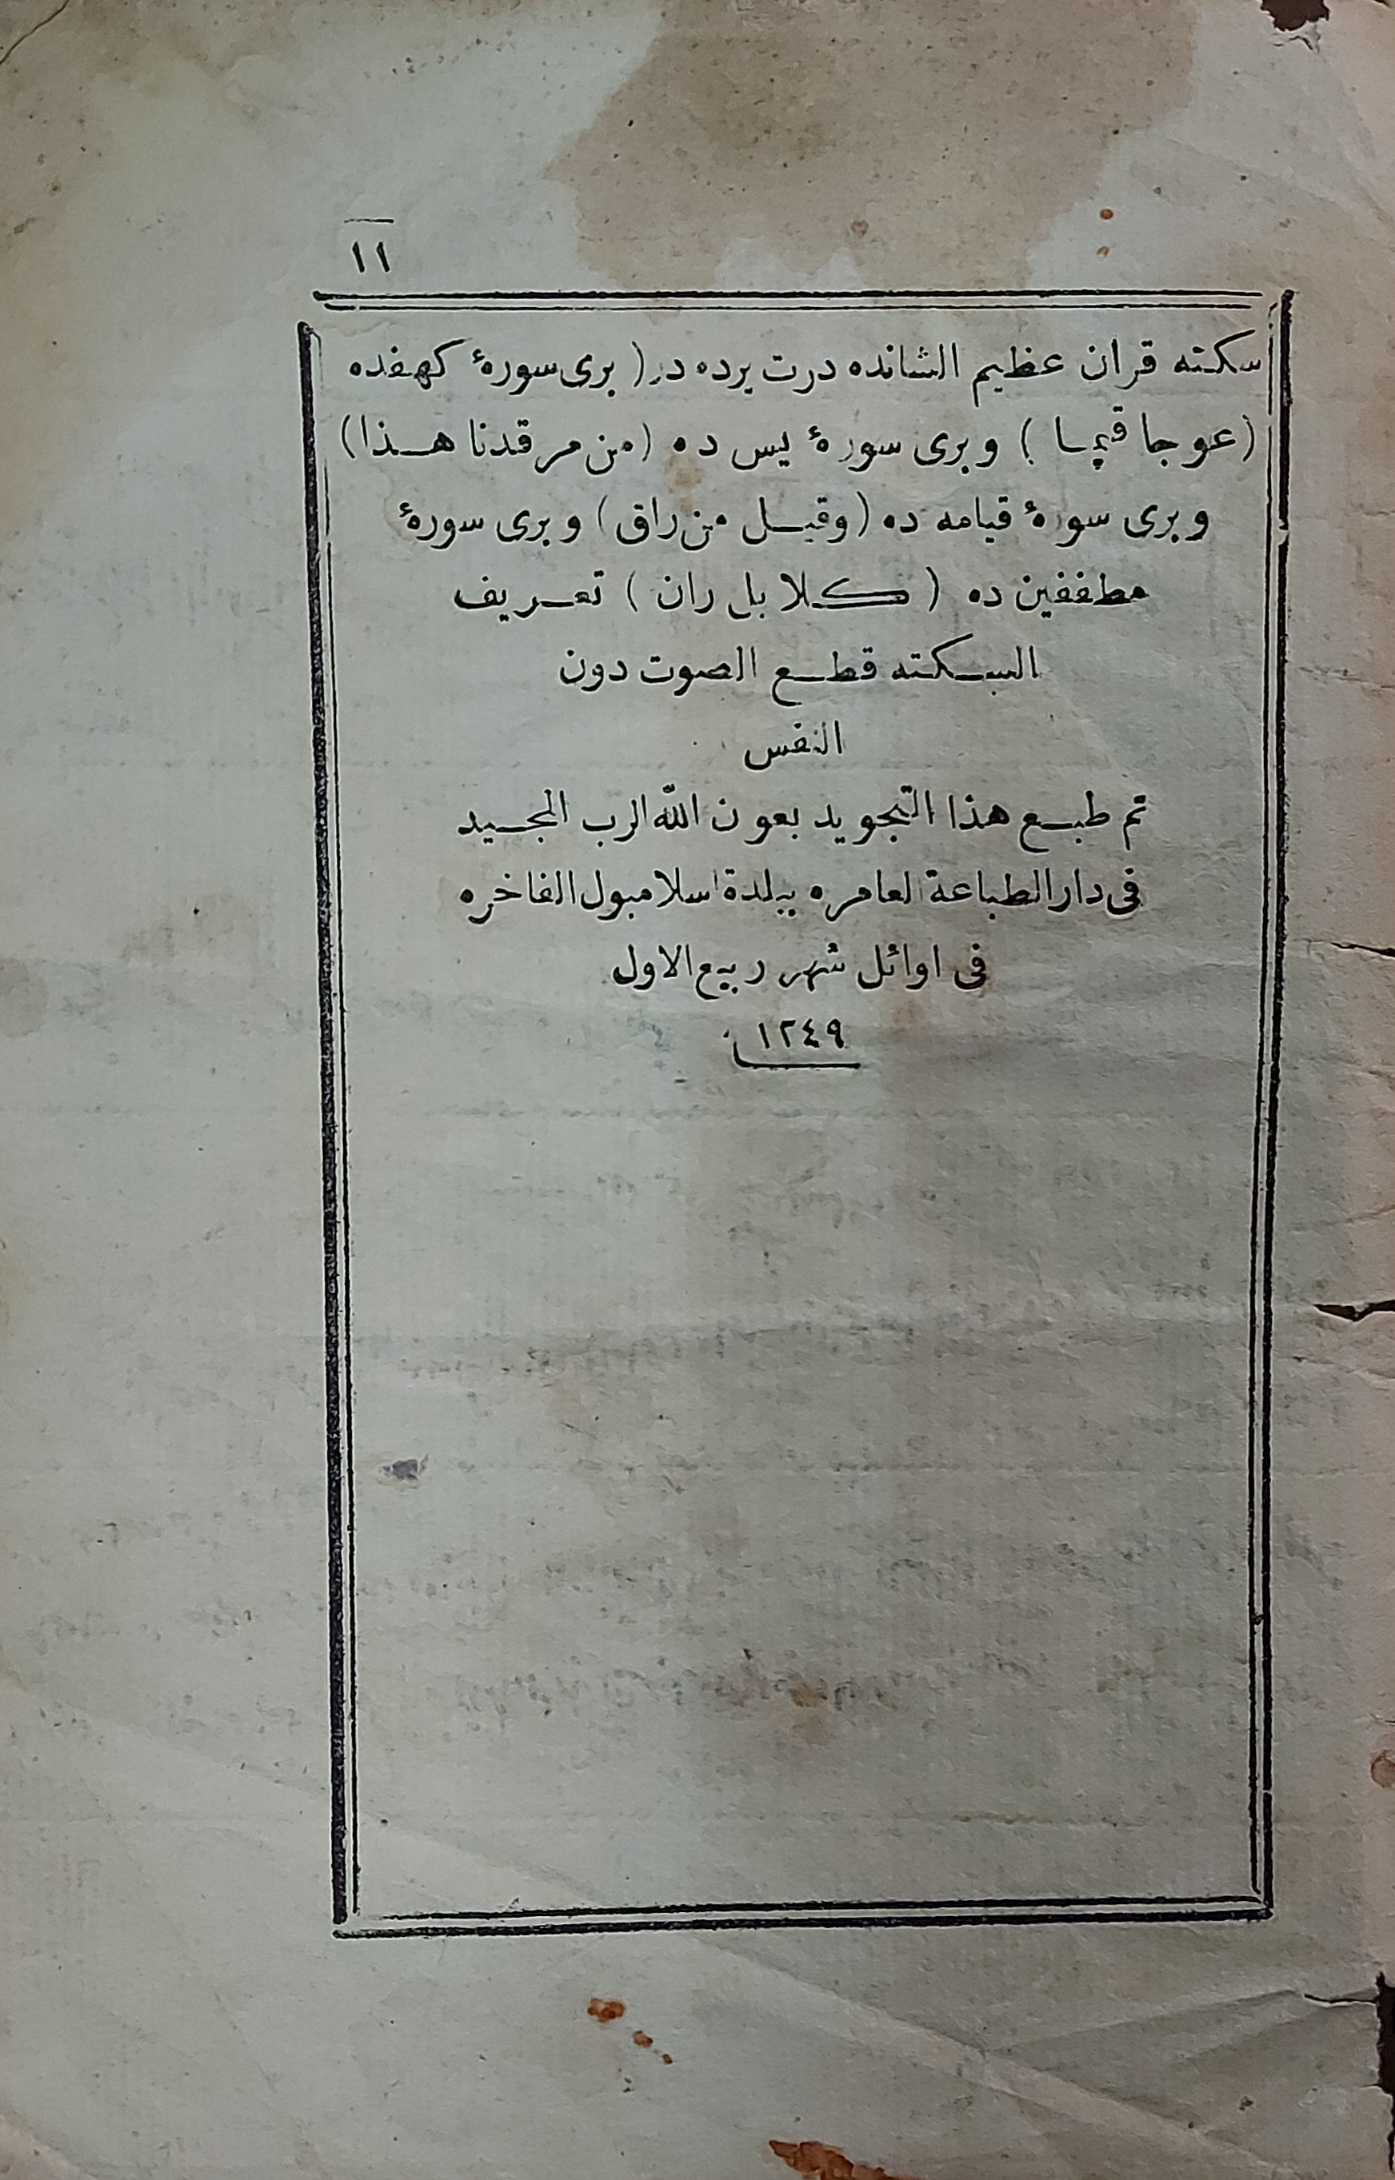 ١١
سكته قران عظيم الشانده درت يرده در ( برى سورۀ كهفده
(عوجا قيما ) و برى سورۀ يس ده (من مرقدنا هذا)
و برى سورۀ قيامه ده (وقيل من راق) و برى سورۀ
مطففين ده ( كلا بل ران ) تعريف
السكته قطع الصوت دون
النفس
تم طبع هذا التجويد بعون الله الرب المجيد
فى دار الطباعة العامره ببلدة اسلامبول الفاخره
فى اوائل شهر ربيع الاول
١٢٤٩